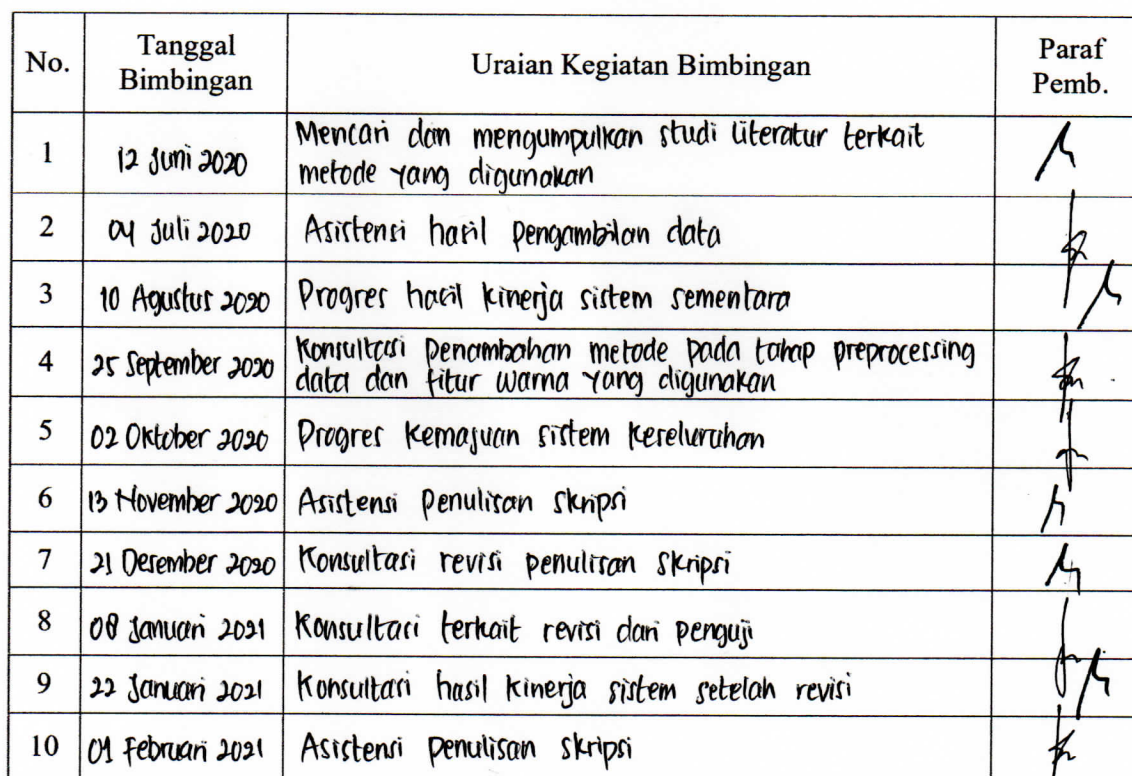 No. Tanggal Bimbingan Uraian Kegiatan Bimbingan Paraf Pemb.
1 12 Juni 2020 Mencari dan mengumpulkan studi literatur terkait
metode yang digunakan
2 04 Juli 2020 Asistensi hasil pengambilan data
3 10 Agustus 2020 Progres hasil kinerja sistem sementara
4 25 September 2020 Konsultasi penambahan metode pada tahap preprocessing
data dan fitur warna yang digunakan
5 02 Oktober 2020 Progres kemajuan sistem keseluruhan
6 13 November 2020 Asistensi penulisan skripsi
7 21 Desember 2020 Konsultasi revisi penulisan skripsi
8 08 Januari 2021 Konsultasi terkait revisi dari penguji
9 22 Januari 2021 Konsultasi hasil kinerja sistem setelah revisi
10 Februari 2021 Asistensi penulisan skripsi